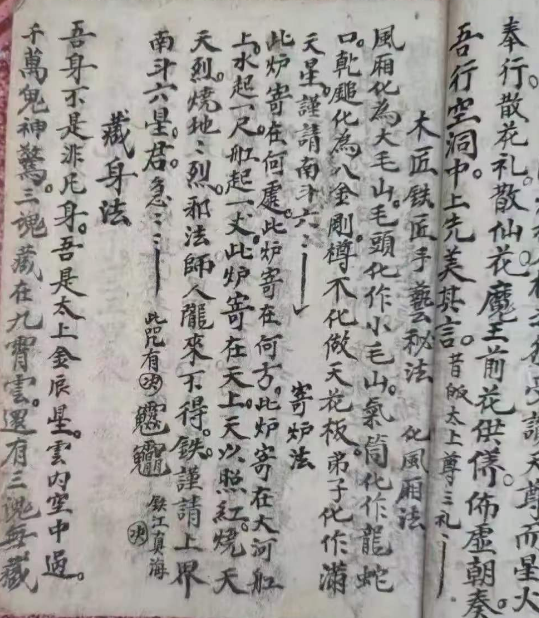 奉行。散花礼。散仙花。魔王前花供儀。佈虛朝奏。
吾行空洞中。上先美其言。昔皈太上尊三礼
木匠铁匠手藝秘法 化風厢法
風厢化為大毛山。毛頭化作小毛山。氣筒化作龍蛇
口。乾颸化為八金剛。樽不化做天花板。弟子化作滿
天星。謹請南斗六 寄炉法
此炉寄在何處。此炉寄在何方。此炉寄在大河舡
上。水起一尺。舡起一丈。此炉寄在天上。天以照紅。燒天
天烈。燒地〻烈。邪法師人龍來不得。鉄謹請上界
南斗六星君。急〻 此咒有 鉄江真海
藏身法
吾身不是非凡身。吾是太上金辰星。雲內空中過。
千萬鬼神驚。三魂藏在九霄雲。還有三魂無藏